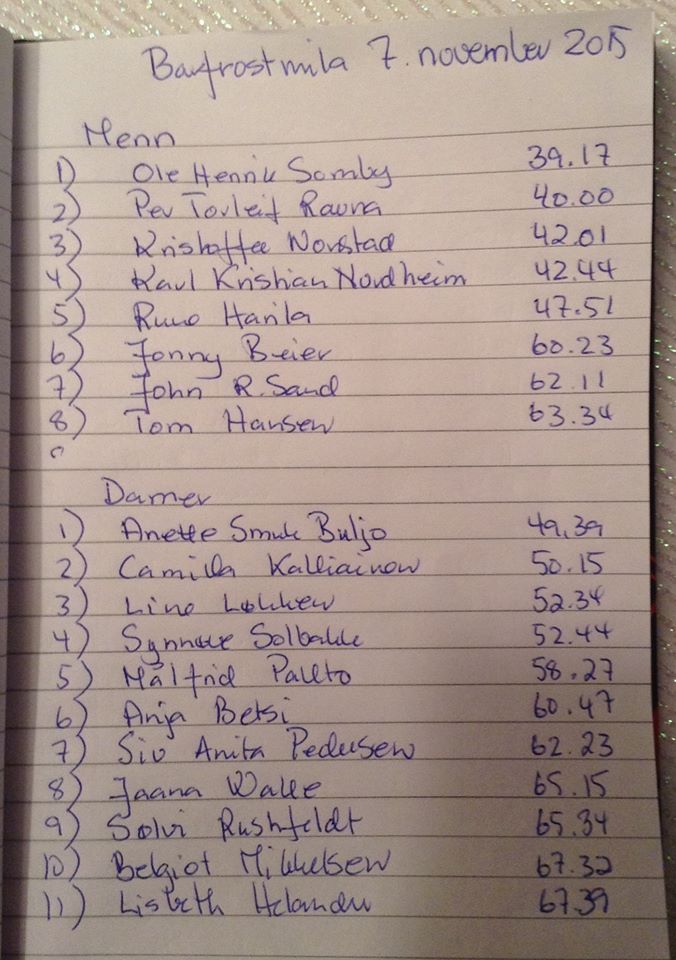 Barfrostmila 7. november 2015
Menn
1) Ole Henrik Somby 39.17
2) Per Torleif Ravna 40.00
3) Kristoffer Norstad 42.01
4) Karl Kristian Nordheim 42.44
5) Runo Harila 47.51
6) Jonny Beier 60.23
7) John R. Sand 62.11
8) Tom Hansen 63.34
Damer
1) Anette Smuk Buljo 49.39
2) Camilla Kalliainen 50.15
3) Line Løkken 52.34
4) Synnøve Solbakk 52.44
5) Målfrid Palto 58.27
6) Anja Betsi 60.47
7) Siv Anita Pedersen 62.23
8) Jaana Walle 65.15
9) Sølvi Rushfeldt 65.34
10) Mikkelsen 67.32
11) Lisbeth Helander 67.39